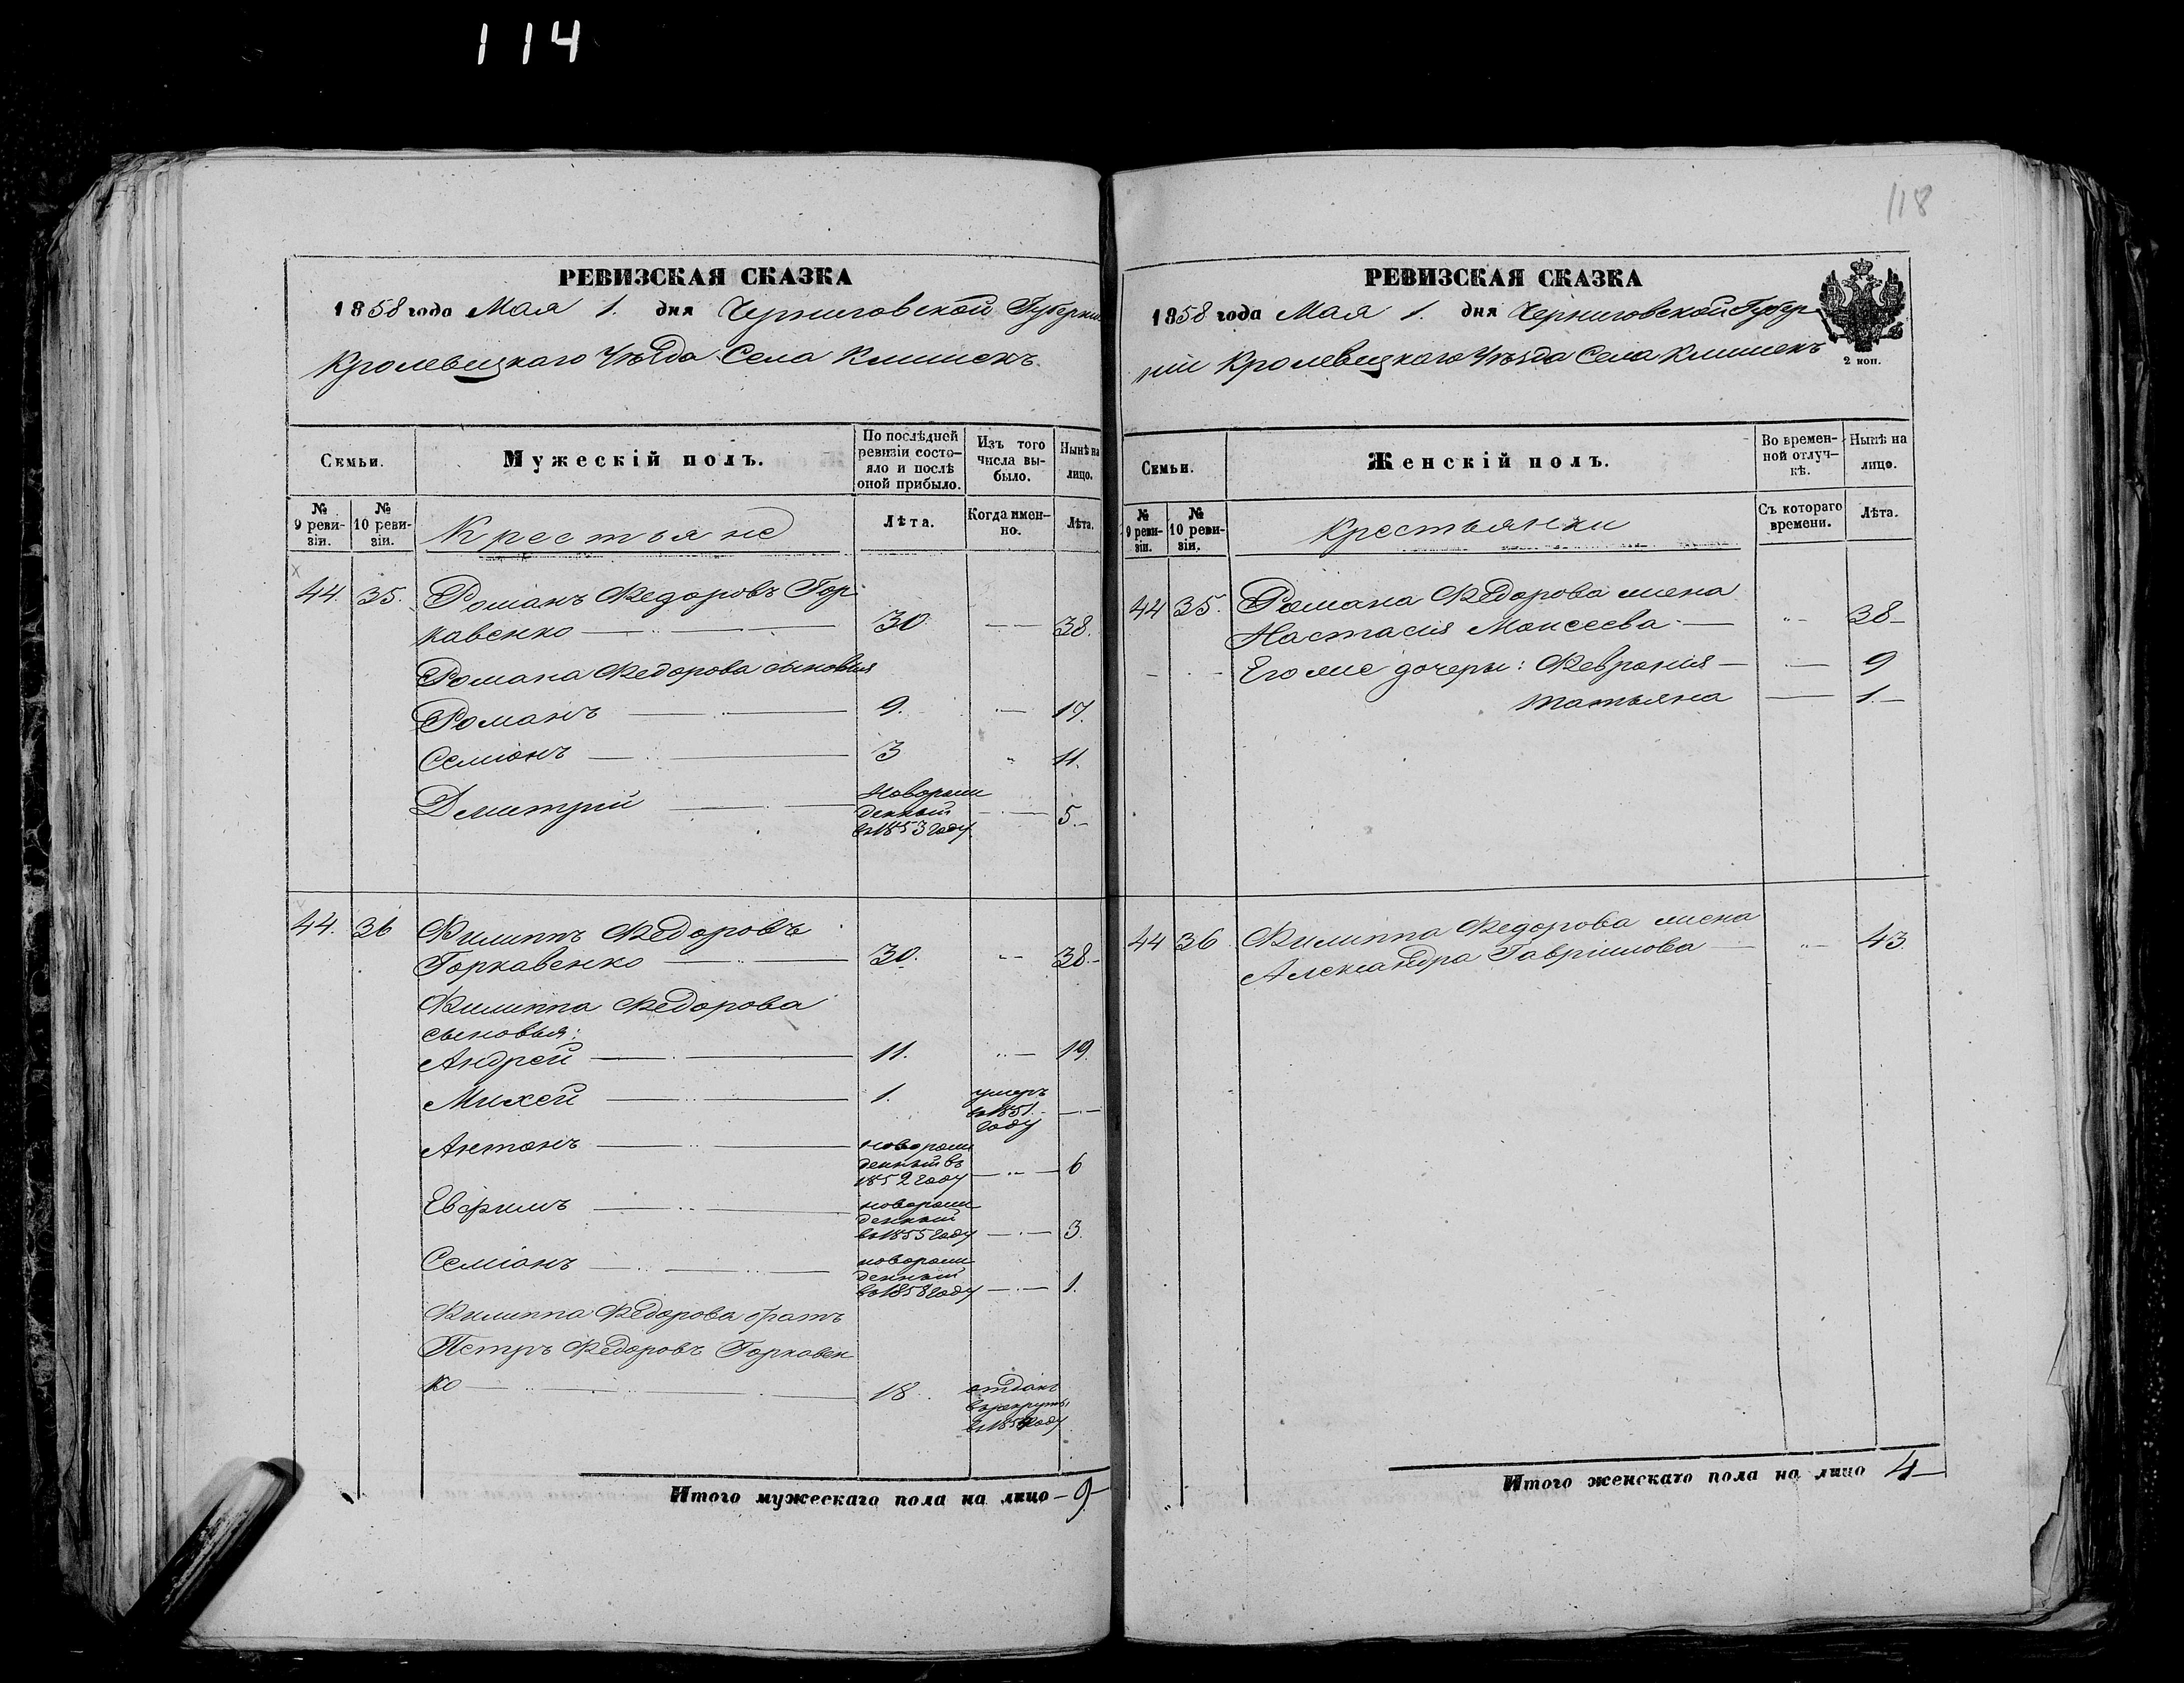 114
118
РЕВИЗСКАЯ СКАЗКА
1858 года Мая 1. дня Черниговской Губерніи
Кролевецкаго Уѣзда Села Клишекъ.
Семьи.
Мужескій полъ.
По послѣдней ревизіи состояло и послѣ оной прибыло.
Изъ того числа выбыло.
Нынѣ на лицо.
№ 9 ревизіи.
№ 10 ревизіи.
Крестьяне
Лѣта.
Когда именно.
Лѣта.
44. 35. Романъ Федоровъ Гор
кавенко 30 38.
Романа Федорова сыновья
Романъ 9. 17.
Семіонъ 3 11.
Дмитрий Новорож
денный
въ 1853 году 5.
44. 36 Филиппъ Федоровъ
Горкавенко 30. 38.
Филиппа Федорова
сыновья:
Андрей 11. 19.
Михей 1. умеръ
въ 1851.
году
Антонъ новорож
денный въ
1852 году 6
Евфимъ новорож
денный
въ 1855 году 3.
Семіонъ новорож
денный
въ 1858 году 1.
Филиппа Федорова братъ
Петръ Федоровъ Горкавен
ко 18. отданъ
въ рекруты
Итого мужескаго пола на лицо 9
РЕВИЗСКАЯ СКАЗКА
1858 года Мая 1. дня Черниговской Губер
ніи Кролевецкаго Уѣзда Села Клишекъ
2 коп.
Семьи.
Женскій полъ.
Во временной отлучкѣ.
Нынѣ на лицо.
№ 9 ревизіи.
№ 10 ревизіи.
Крестьянки
Съ котораго времени.
Лѣта.
44 35. Романа Федорова жена
Настасия Моисеева 38
Его же дочеры: Феврония 9
татьяна 1.
44 36 Филиппа Федорова жена
Александра Гавріилова 43
Итого женскаго пола на лицо 4